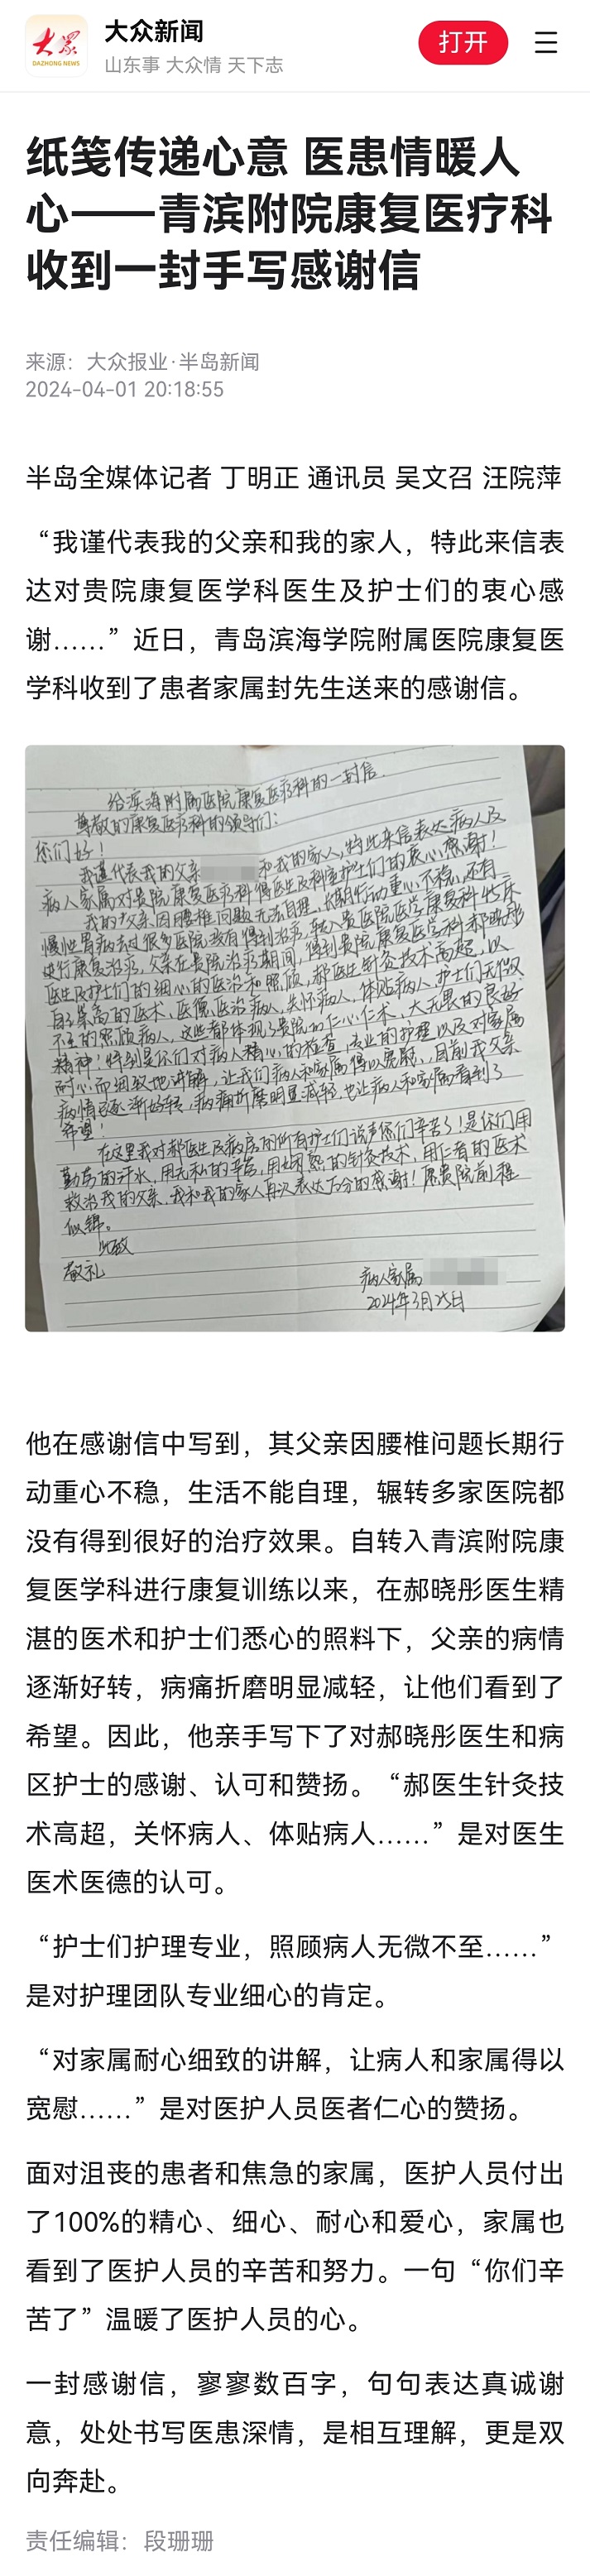 大众
DAZHONG NEWS
大众新闻
山东事 大众情 天下志
打开
纸笺传递心意 医患情暖人
心——青滨附院康复医疗科
收到一封手写感谢信
来源：大众报业·半岛新闻
2024-04-01 20:18:55
半岛全媒体记者 丁明正 通讯员 吴文召 汪院萍
“我谨代表我的父亲和我的家人，特此来信表
达对贵院康复医学科医生及护士们的衷心感
谢……”近日，青岛滨海学院附属医院康复医
学科收到了患者家属封先生送来的感谢信。
给滨海附属医院康复医疗科的一封信
尊敬的康复医疗科的领导们：
你们好！
我谨代表我的父亲 和我的家人，特此来信表达病人及
病人家属对贵院康复医疗科 医生及科室护士们的衷心感谢！
我的父亲因腰椎问题无法自理，长期行动重心不稳，还有
慢性胃病去过很多医院没有得到治疗，转入贵医院医学康复科
进行康复治疗，父亲在贵院治疗期间，得到贵院康复医学科郝晓彤
医生及护士们的细心的医治和照顾，郝医生针灸技术高超，以
自己崇高的医术，医德医治病人，关怀病人，体贴病人，护士们无微
不至的照顾病人，这些都体现了贵院的仁心仁术，大无畏的良好
精神！特别是你们对病人精心的检查，专业的护理以及对家属
耐心而细致地讲解，让我们病人和家属得以宽慰，目前我父亲
病情已逐渐好转，病痛折磨明显减轻，也让病人和家属看到了
希望！
在这里我对郝医生及病房的所有护士们说声你们辛苦了！是你们用
勤劳的汗水，用无私的辛苦，用娴熟的针灸技术，用仁者的医术
救治我的父亲，我和我的家人再次表达万分的感谢！愿贵院前程
似锦。
此致
敬礼
病人家属
2024年3月25日
他在感谢信中写到，其父亲因腰椎问题长期行
动重心不稳，生活不能自理，辗转多家医院都
没有得到很好的治疗效果。自转入青滨附院康
复医学科进行康复训练以来，在郝晓彤医生精
湛的医术和护士们悉心的照料下，父亲的病情
逐渐好转，病痛折磨明显减轻，让他们看到了
希望。因此，他亲手写下了对郝晓彤医生和病
区护士的感谢、认可和赞扬。“郝医生针灸技
术高超，关怀病人、体贴病人……”是对医生
医术医德的认可。
“护士们护理专业，照顾病人无微不至……”
是对护理团队专业细心的肯定。
“对家属耐心细致的讲解，让病人和家属得以
宽慰……”是对医护人员医者仁心的赞扬。
面对沮丧的患者和焦急的家属，医护人员付出
了100%的精心、细心、耐心和爱心，家属也
看到了医护人员的辛苦和努力。一句“你们辛
苦了”温暖了医护人员的心。
一封感谢信，寥寥数百字，句句表达真诚谢
意，处处书写医患深情，是相互理解，更是双
向奔赴。
责任编辑：段珊珊